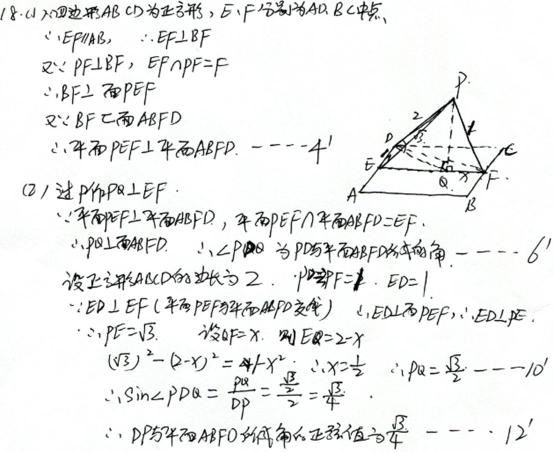 18.(1)∵四边形ABCD为正方形，E、F分别为AD、BC中点
∴EF∥AB， ∴EF⊥BF
又∵PF⊥BF，EF∩PF=F
∴BF⊥面PEF
又∵BF⊂面ABFD
∴平面PEF⊥平面ABFD. ----4'
(2)过P作PQ⊥EF.
∵平面PEF⊥平面ABFD，平面PEF∩平面ABFD=EF.
∴PQ⊥面ABFD. ∴∠PDQ为PD与平面ABFD所成的角 ----6'
设正方形ABCD的边长为2. PF=1. ED=1
∵ED⊥EF(平面PEF与平面ABFD交线) ∴ED⊥面PEF，∴ED⊥PE.
∴PE=√3. 设QF=x. 则EQ=2-x
(√3)²-(2-x)²=1-x² ∴x=1/2 ∴PQ=√3/2 ----10'
∴Sin∠PDQ=PQ/DP=(√3/2)/2=√3/4.
∴DP与平面ABFD所成角的正弦值为√3/4 ----12'
P
2
√3
1
D
C
E
Q
x
F
A
B